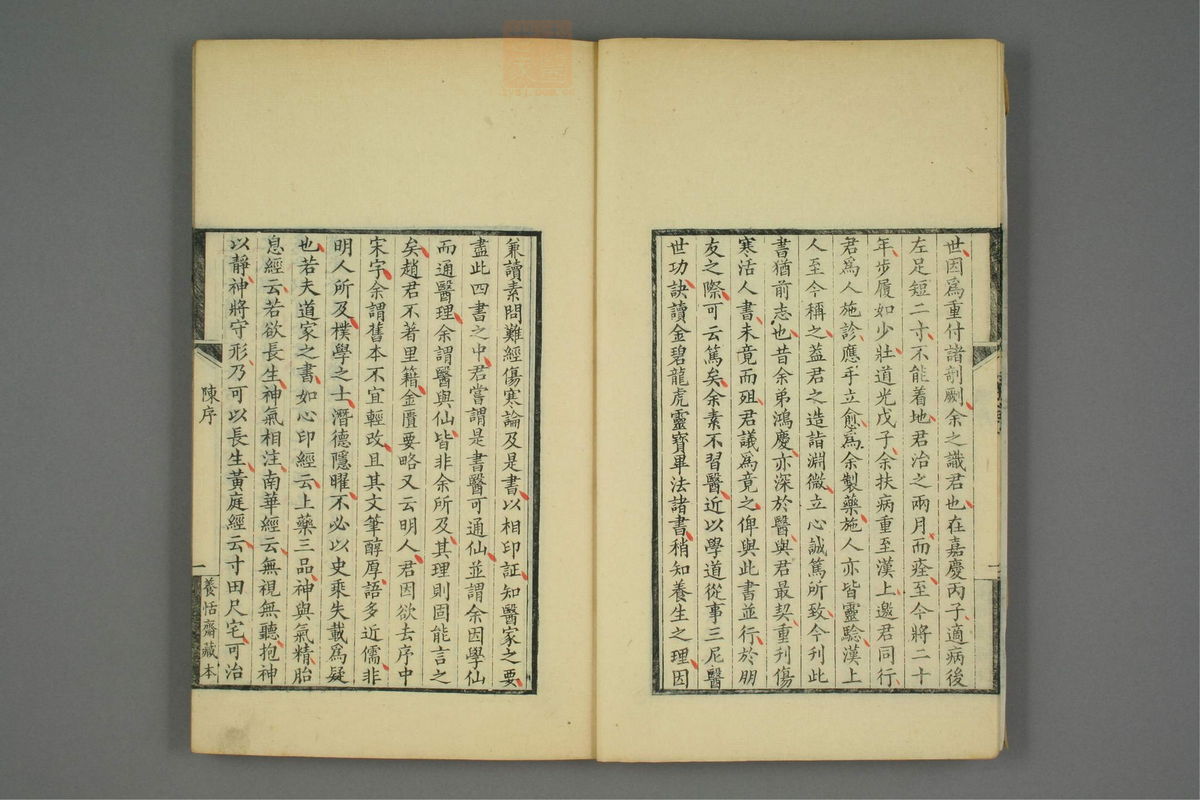 世因爲重付諸剞劂余之識君也在嘉慶丙子適病後
左足短二寸不能着地君治之兩月而痊至今將二十
年步履如少壯道光戊子余扶病重至漢上邀君同行
君爲人施診應手立愈爲余製藥施人亦皆靈驗漢上
人至今稱之葢君之造詣淵微立心誠篤所致今刊此
書猶前志也昔余弟鴻慶亦深於醫與君最契重刊傷
寒活人書未竟而殂君議爲竟之俾與此書並行於朋
友之際可云篤矣余素不習醫近以學道從事三尼醫
世功訣讀金碧龍虎靈寶畢法諸書稍知養生之理因
兼讀素問難經傷寒論及是書以相印証知醫家之要
盡此四書之中君嘗謂是書醫可通仙並謂余因學仙
而通醫理余謂醫與仙皆非余所及其理則固能言之
矣趙君不著里籍金匱要略又云明人君因欲去序中
宋字余謂舊本不宜輕改且其文筆醇厚語多近儒非
明人所及樸學之士潛德隱曜不必以史乘失載爲疑
也若夫道家之書如心印經云上藥三品神與氣精胎
息經云若欲長生神氣相注南華經云無視無聽抱神
以靜神將守形乃可以長生黃庭經云寸田尺宅可治
陳序
一
養恬齋藏本